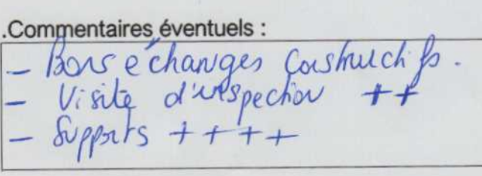 .Commentaires éventuels :
- Bons échanges constructifs.
- Visite d'inspection ++
- Supports ++++